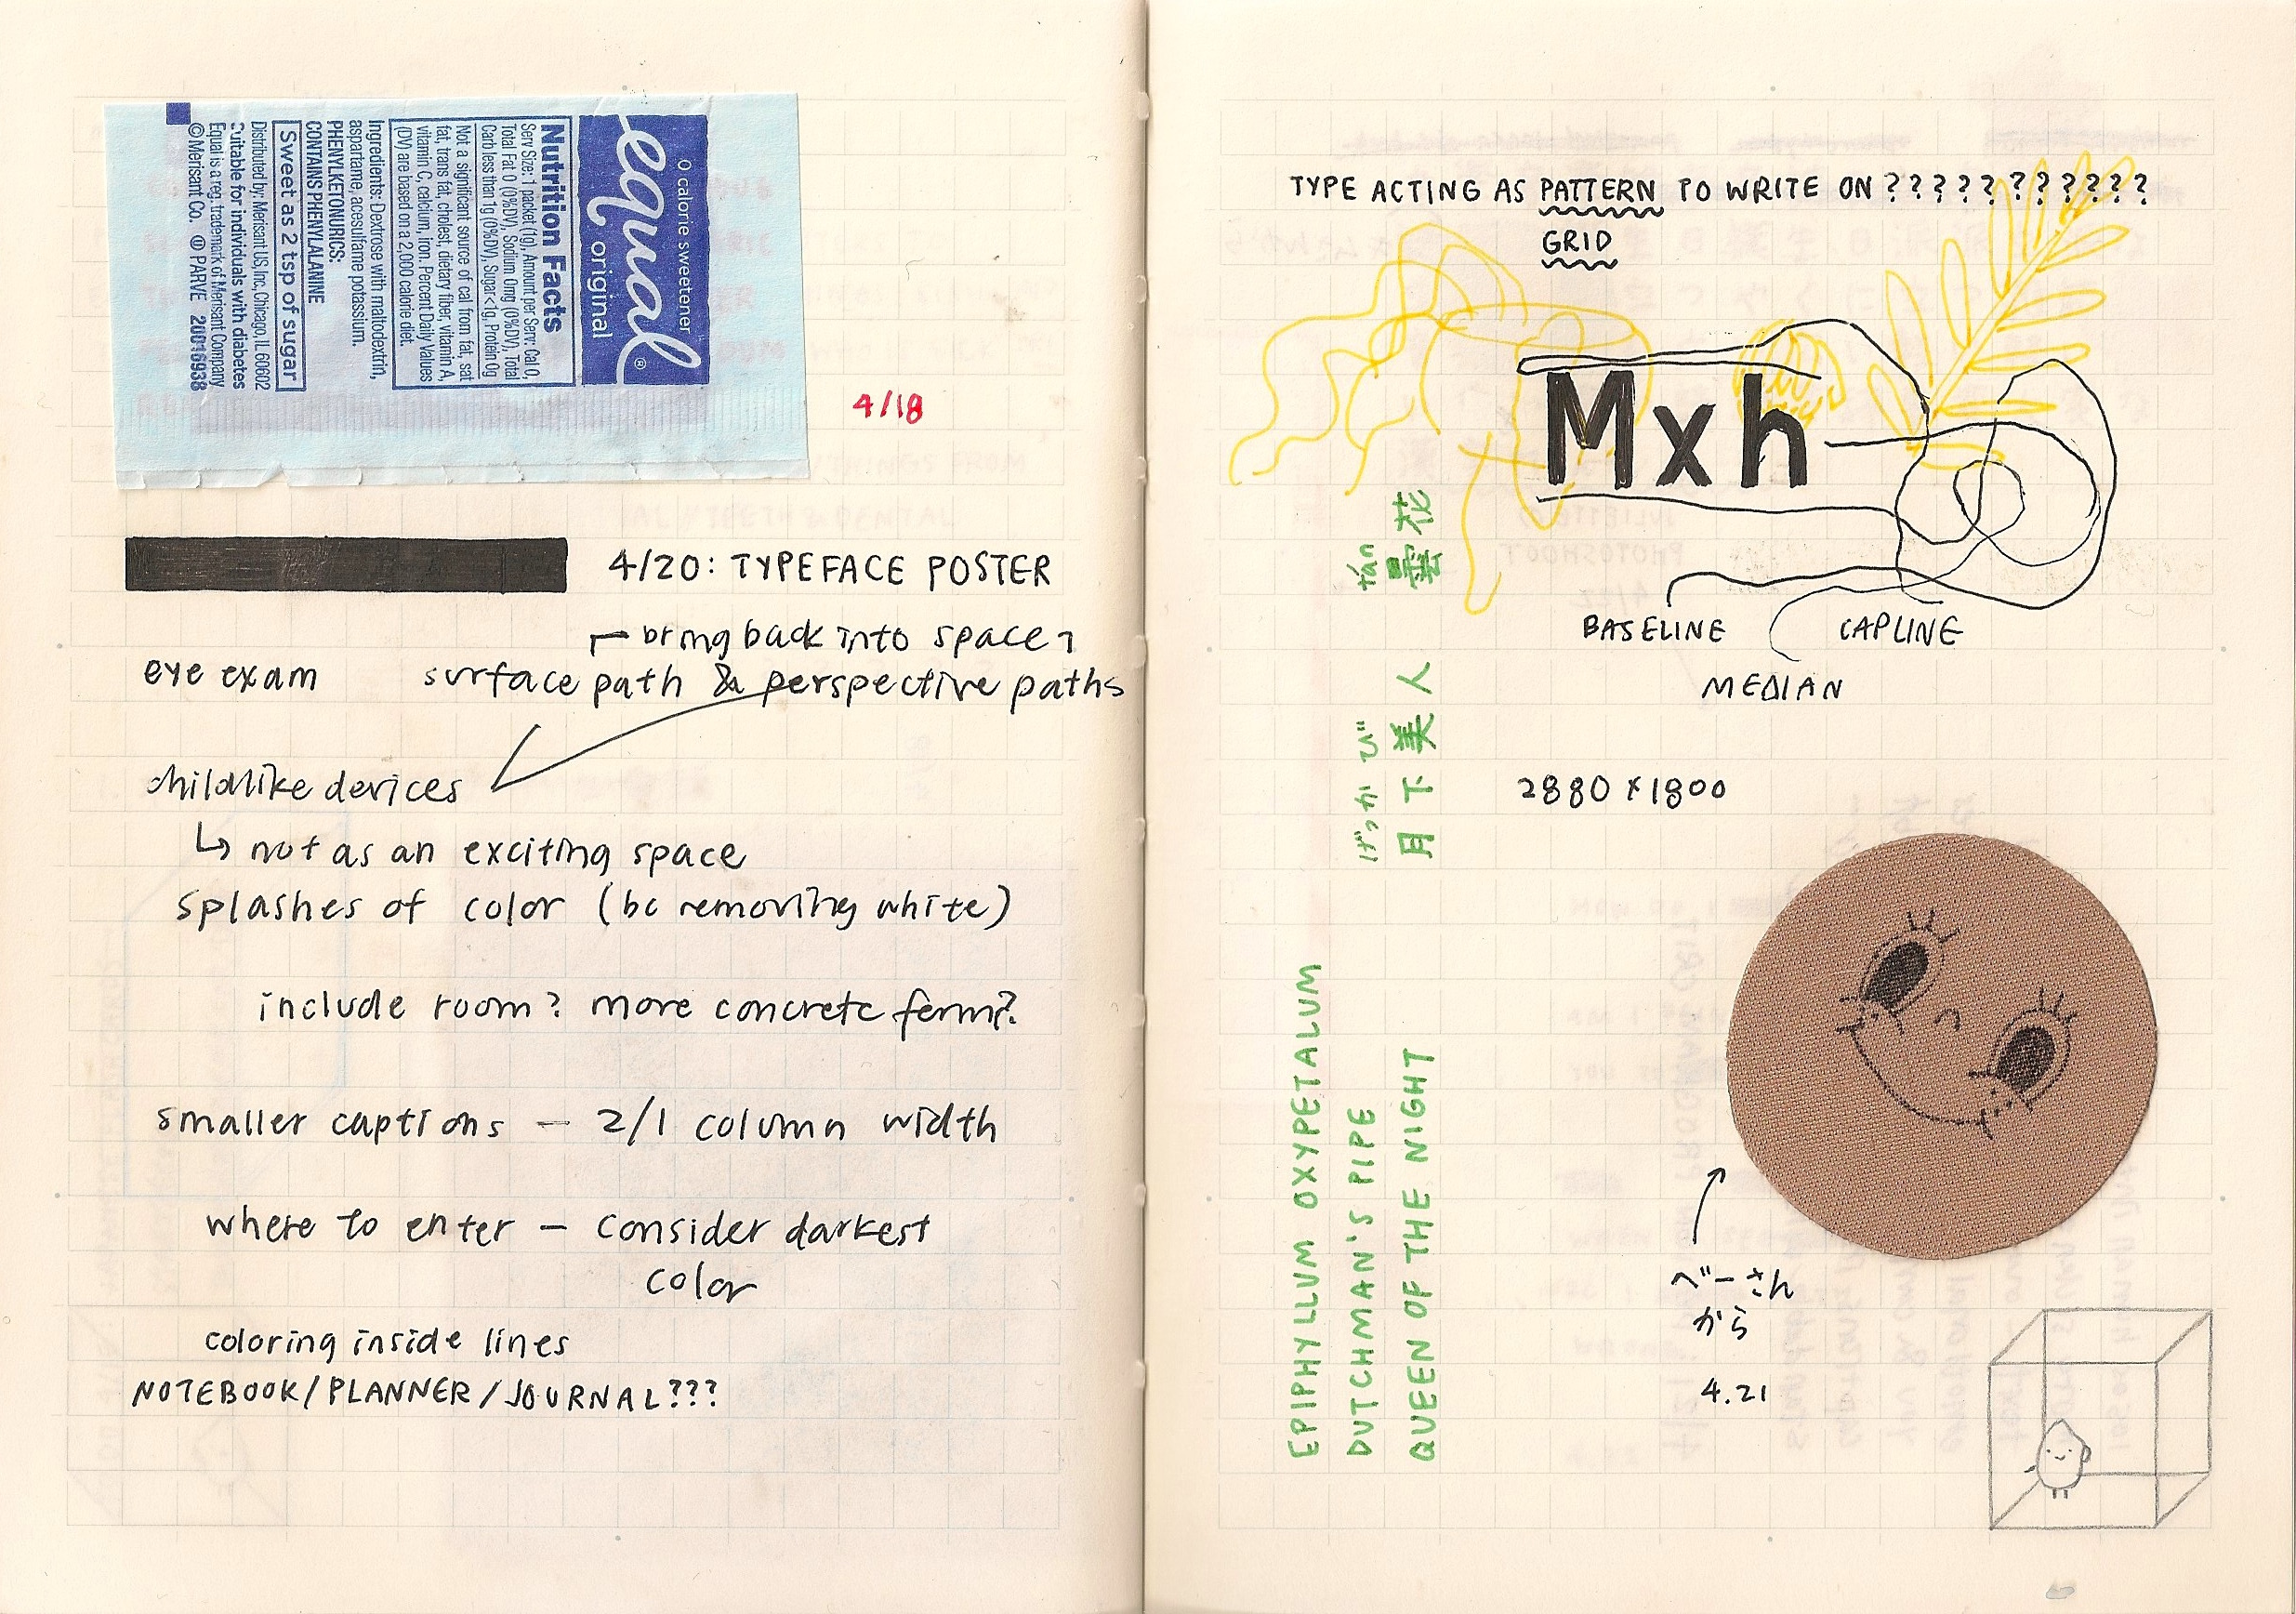 0 calorie sweetener
equal®
original
Nutrition Facts
Serv Size: 1 packet (1g), Amount per Serv: Cal 0,
Total Fat 0 (0%DV), Sodium 0mg (0%DV), Total
Carb less than 1g (0%DV), Sugar <1g, Protein 0g
Not a significant source of cal from fat, sat
fat, trans fat, cholest, dietary fiber, vitamin A,
vitamin C, calcium, iron. Percent Daily Values
(DV) are based on a 2,000 calorie diet.
Ingredients: Dextrose with maltodextrin,
aspartame, acesulfame potassium.
PHENYLKETONURICS:
CONTAINS PHENYLALANINE
Sweet as 2 tsp of sugar
Distributed by: Merisant US, Inc, Chicago, IL 60602
Suitable for individuals with diabetes
Equal is a reg. trademark of Merisant Company
©Merisant Co. Ⓤ PARVE 20016938
4/18
4/20: TYPEFACE POSTER
bring back into space
eye exam surface path & perspective paths
childlike devices
↳ not as an exciting space
splashes of color (bc removing white)
include room? more concrete form?
smaller captions — 2/1 column width
where to enter — consider darkest
color
coloring inside lines
NOTEBOOK/PLANNER/JOURNAL???
TYPE ACTING AS PATTERN TO WRITE ON ???????????
GRID
Mxh
BASELINE
CAPLINE
MEDIAN
tán
曇花
げっか び
月下美人
EPIPHYLLUM OXYPETALUM
DUTCHMAN'S PIPE
QUEEN OF THE NIGHT
2880 x 1800
べーさん
から
4.21